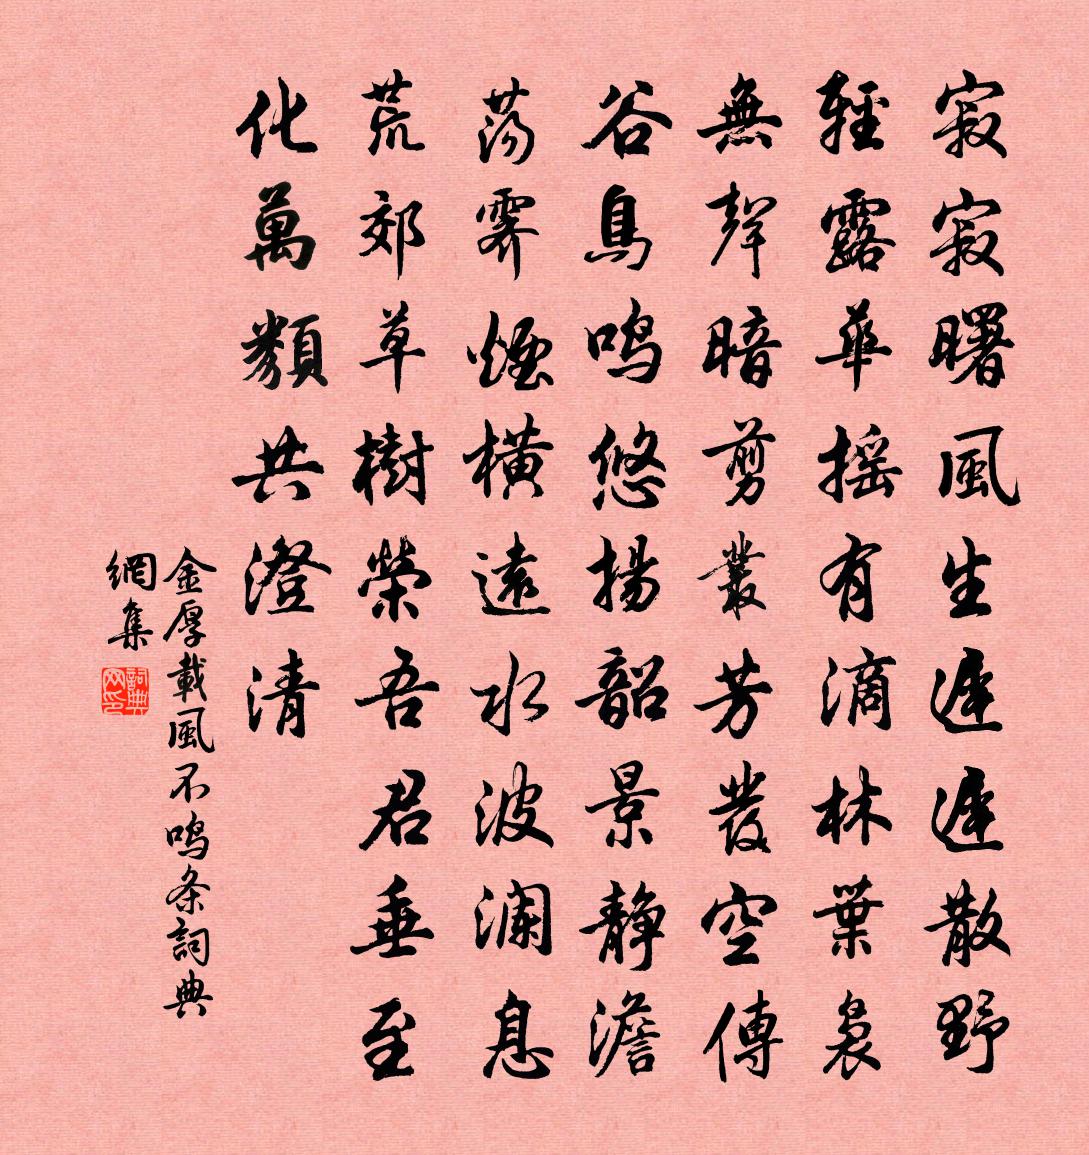 寂寂曙風生遲遲散野
輕露華搖有滴林葉裊
無聲暗剪叢芳發空傳
谷鳥鳴悠揚韶景靜澹
蕩霽煙橫遠水波瀾息
荒郊草樹榮吾君垂至
化萬類共澄清
金厚載風不鳴条詞典
網集
詞典网印